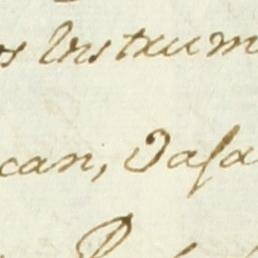 os Instrum
can, Dasa